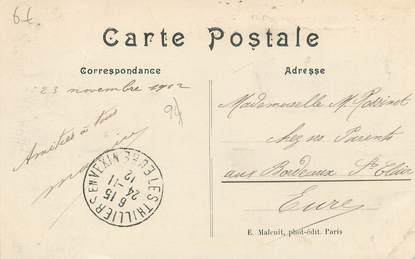 6f
Carte Postale
Correspondance
Adresse
23 novembre 1912
94
Amitiés à tous
Mademoiselle M.
chez ses Parents
aux Bordeaux St Clair
Eure
LES THILLIERS EN VEXIN EURE
6 15
24 - 11
12
E. Malcuit, phot-édit. Paris